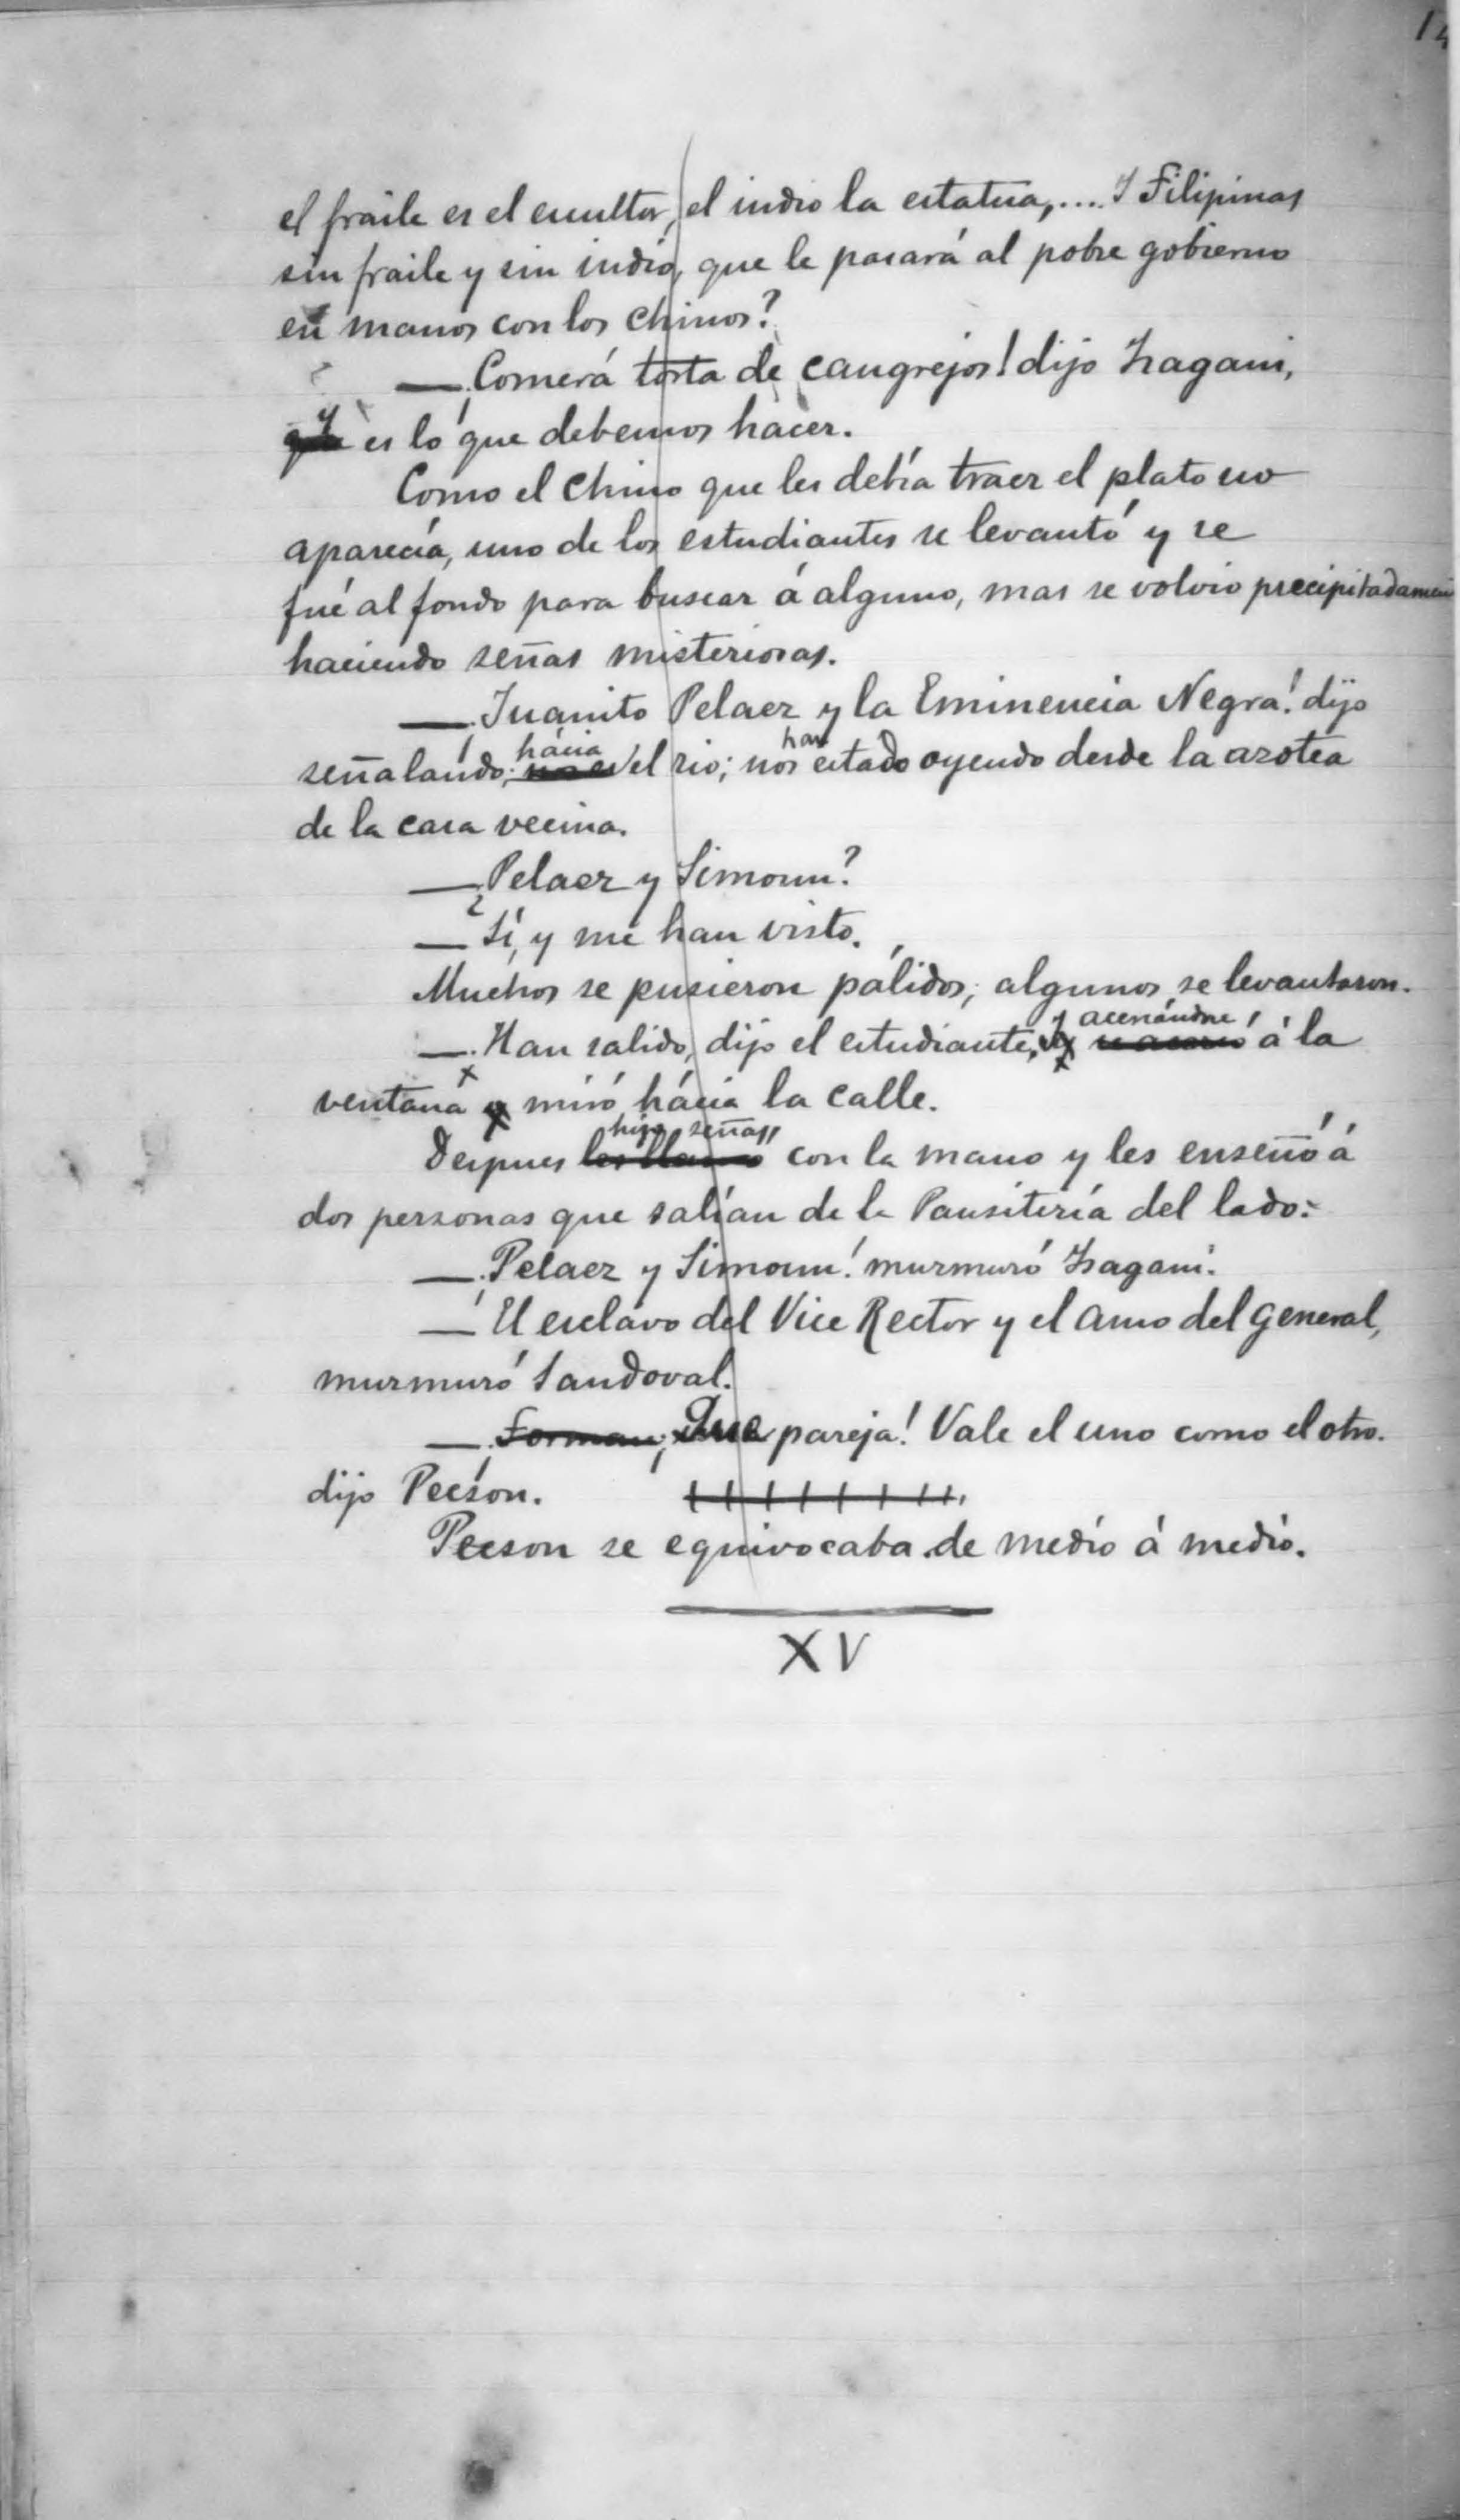 14
el fraile es el escultor, el indio la estatua,.... Y Filipinas
sin fraile y sin indio, que le pasará al pobre gobierno
en manos con los chinos?
—¡Comerá torta de cangrejos! dijo Isagani,
y es lo que debemos hacer.
Como el chino que les debía traer el plato no
aparecía, uno de los estudiantes se levantó y se
fué al fondo para buscar á alguno, mas se volvió precipitadamen
haciendo señas misteriosas.
—¡Juanito Pelaez y la Eminencia Negra! dijo
señalando hácia el rio; nos han estado oyendo desde la azotea
de la casa vecina.
—¿Pelaez y Simoun?
—Sí, y me han visto.
Muchos se pusieron pálidos; algunos se levantaron.
—Han salido, dijo el estudiante, y acercándose á la
ventana miró hácia la calle.
Despues hizo señas con la mano y les enseñó á
dos personas que salían de la Pansitería del lado:
—¡Pelaez y Simoun! murmuró Isagani.
—El esclavo del Vice Rector y el amo del General,
murmuró Sandoval.
—¡Forman, ¡Que pareja! Vale el uno como el otro.
dijo Pecson.
Pecson se equivocaba de medio á medio.
XV